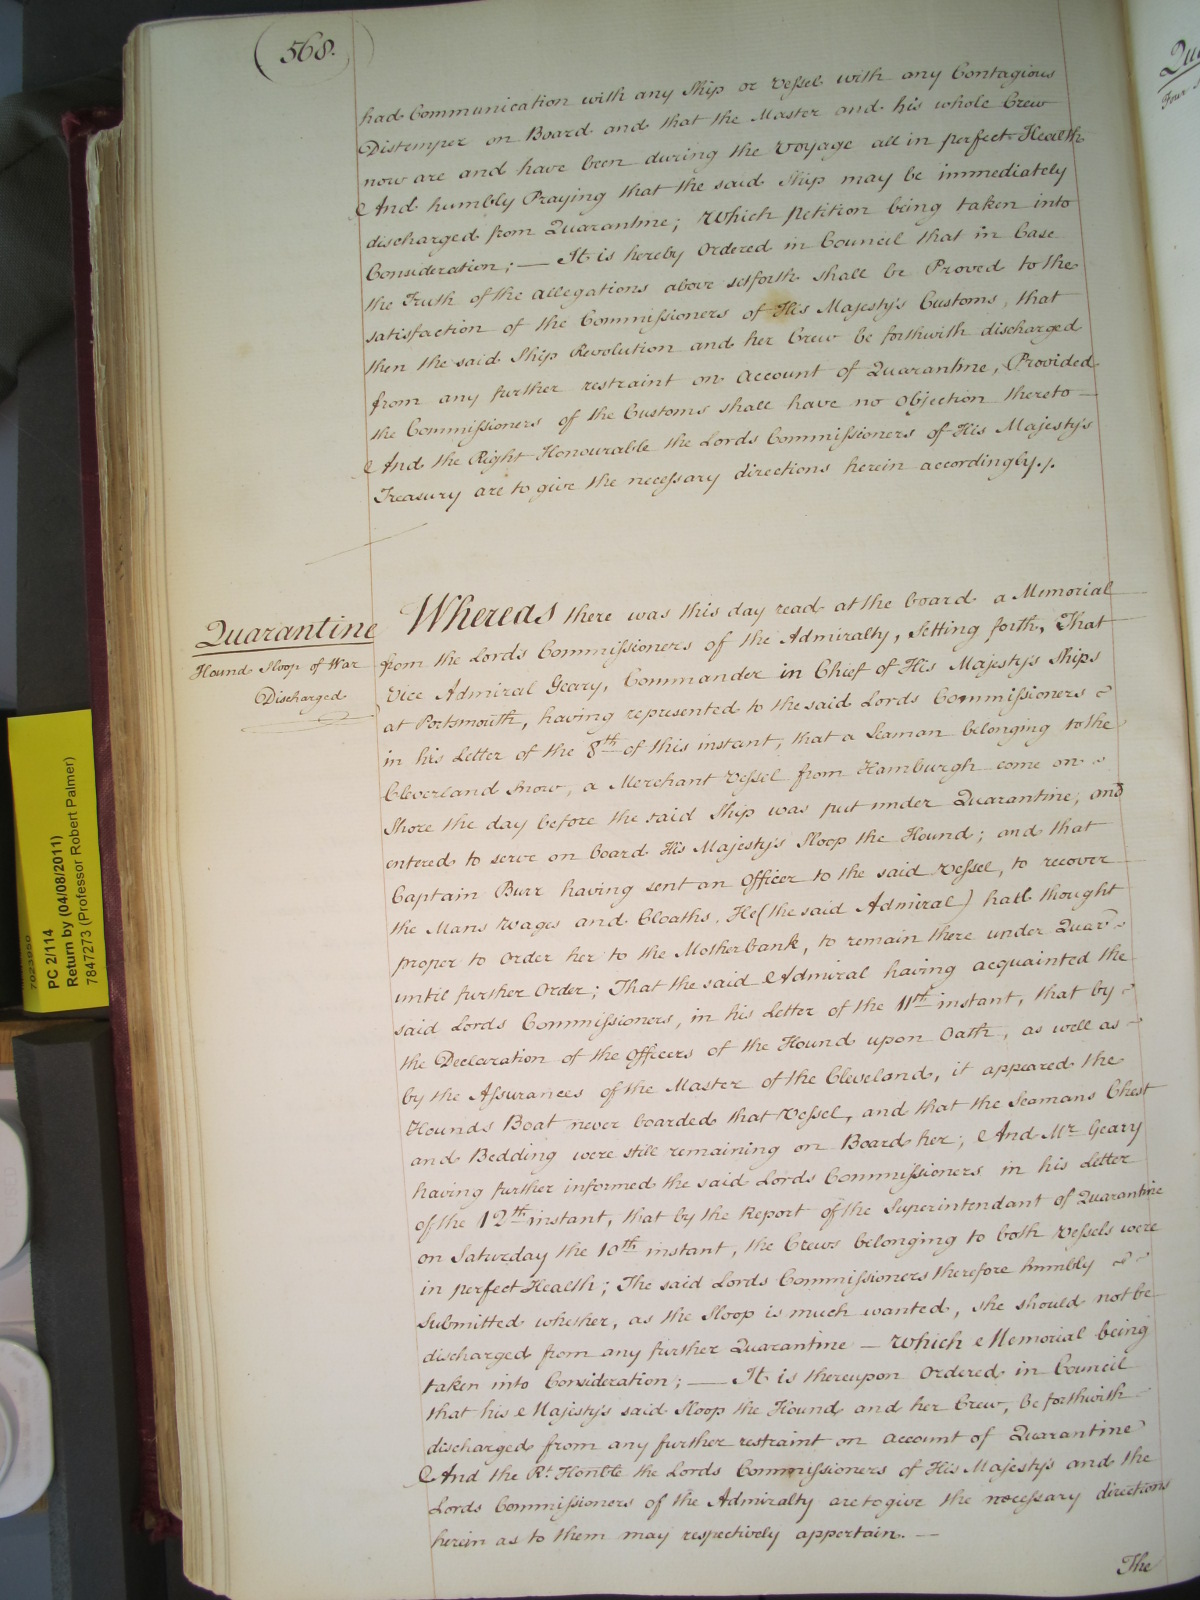 (568.)
had Communication with any Ship or Vessel with any Contagious
Distemper on Board and that the Master and his whole Crew
now are and have been during the Voyage all in perfect Health
And humbly Praying that the said Ship may be immediately
discharged from Quarantine; Which Petition being taken into
Consideration; — It is hereby Ordered in Council that in Case
the Truth of the allegations above setforth shall be Proved to the
satisfaction of the Commissioners of His Majesty's Customs, that
then the said Ship Revolution and her Crew be forthwith discharged
from any further restraint on Account of Quarantine, Provided
the Commissioners of the Customs shall have no Objection thereto —
And the Right Honourable the Lords Commissioners of His Majesty's
Treasury are to give the necessary directions herein accordingly./.
Quarantine
Hound Sloop of War
Discharged
Whereas there was this day read at the board a Memorial
from the Lords Commissioners of the Admiralty, Setting forth, That
Vice Admiral Geary, Commander in Chief of His Majesty's Ships
at Portsmouth, having represented to the said Lords Commissioners
in his Letter of the 8th of this instant, that a Seaman belonging to the
Cleverland Snow, a Merchant Vessel from Hamburgh come on
Shore the day before the said Ship was put under Quarantine; and
entered to serve on board His Majesty's Sloop the Hound; and that
Captain Burr having sent an Officer to the said Vessel, to recover
the Mans Wages and Cloaths. He (the said Admiral) hath thought
proper to Order her to the Motherbank, to remain there under Quar
until further Order; That the said Admiral having acquainted the
said Lords Commissioners, in his Letter of the 11th instant, that by
the Declaration of the Officers of the Hound upon Oath, as well as
by the Assurances of the Master of the Cleveland, it appeared the
Hounds Boat never boarded that Vessel, and that the Seamans Chest
and Bedding were still remaining on Board her; And Mr Geary
having further informed the said Lords Commissioners in his Letter
of the 12th instant, that by the Report of the Superintendant of Quarantine
on Saturday the 10th instant, the Crews belonging to both Vessels were
in perfect Health; The said Lords Commissioners therefore humbly
Submitted whether, as the Sloop is much wanted, she should not be
discharged from any further Quarantine — Which Memorial being
taken into Consideration; — It is thereupon Ordered in Council
that his Majesty's said Sloop the Hound and her Crew, be forthwith
discharged from any further restraint on Account of Quarantine
And the Rt Honble the Lords Commissioners of His Majesty's and the
Lords Commissioners of the Admiralty are to give the necessary directions
herein as to them may respectively appertain. —
The
PC 2/114
Return by (04/08/2011)
7847273 (Professor Robert Palmer)